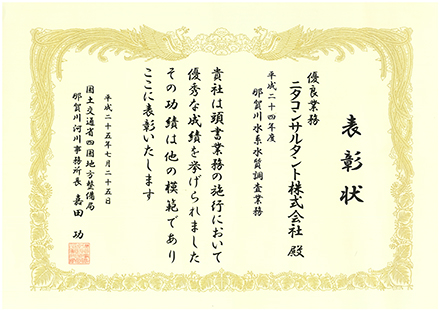 表彰状
優良業務
ニタコンサルタント株式会社 殿
平成二十四年度
那賀川水系水質調査業務
貴社は頭書業務の施行において
優秀な成績を挙げられました
その功績は他の模範であり
ここに表彰いたします
平成二十五年七月二十五日
国土交通省四国地方整備局
那賀川河川事務所長 嘉田 功